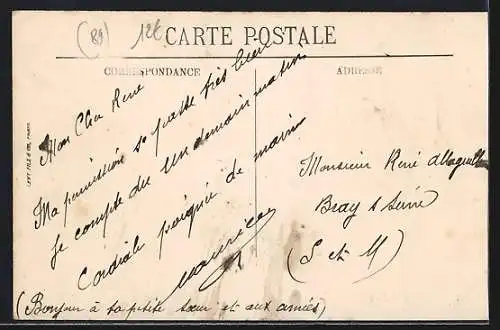 (89)
12€
CARTE POSTALE
CORRESPONDANCE
ADRESSE
Mon Cher René
Ma permission se passe très bien
Je compte du Un demain matin
Cordiale poignée de main
Maurice
(Bonjour à ta petite sœur et aux amies)
Monsieur René
Bray s Seine
(S et M)
LEVY FILS & CIE, PARIS